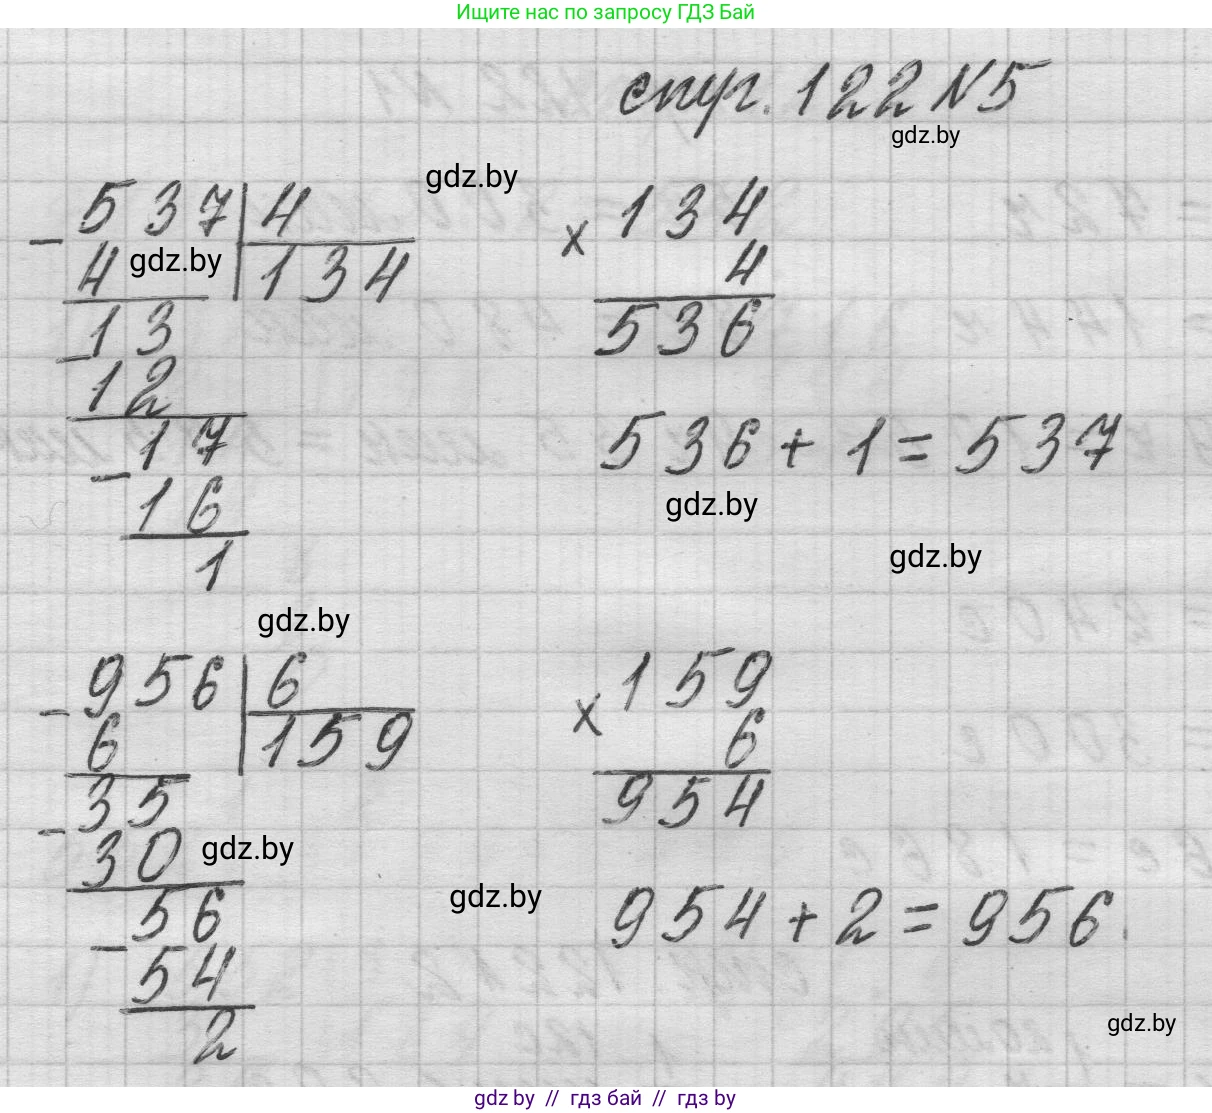 Ищите нас по запросу ГДЗ Бай
стр. 122 N5
gdz.by
gdz.by
- 537 | 4
4 | 134
gdz.by
13
- 12
17
- 16
1
× 134
4
536
536 + 1 = 537
gdz.by
gdz.by
gdz.by
- 956 | 6
6 | 159
- 35
30
gdz.by
56
- 54
2
× 159
6
954
gdz.by
954 + 2 = 956.
gdz.by
gdz by // гдз бай // гдз by